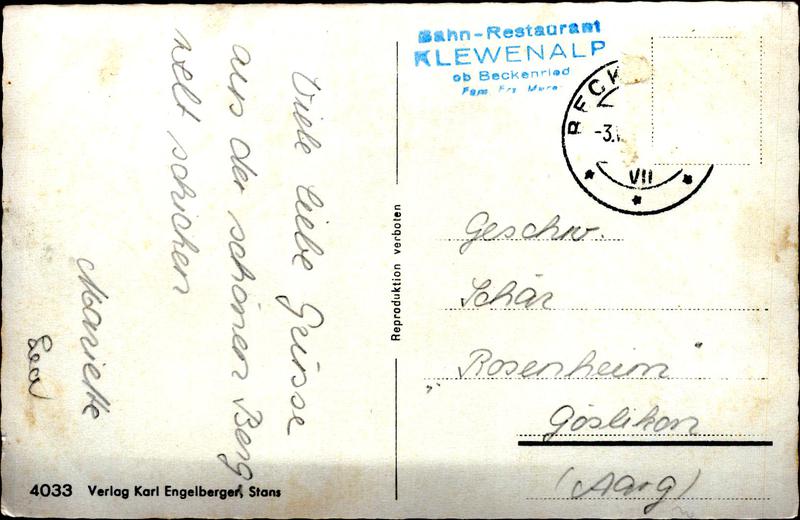 Viele liebe Grüsse
aus der schönen Berg-
welt schicken
Mariette
Eva
4033 Verlag Karl Engelberger, Stans
Reproduktion verboten
Bahn-Restaurant
KLEWENALP
ob Beckenried
Fam.
BECK
-3.
VII
Geschw.
Schär
„Rosenheim"
Göslikon
(Aarg)